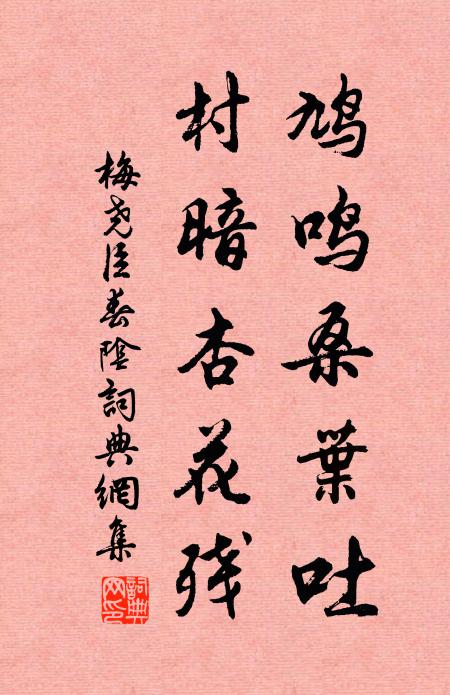 鸠鸣桑葉吐
村暗杏花残
梅尧臣春陰詞典網集
詞典網印